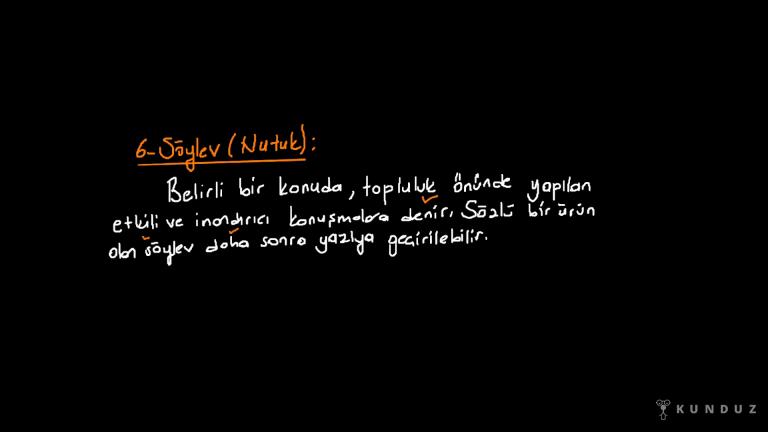 6-Söylev (Nutuk):
Belirli bir konuda, topluluk önünde yapılan
etkili ve inandırıcı konuşmalara denir. Sözlü bir ürün
olan söylev daha sonra yazıya geçirilebilir.
KUNDUZ